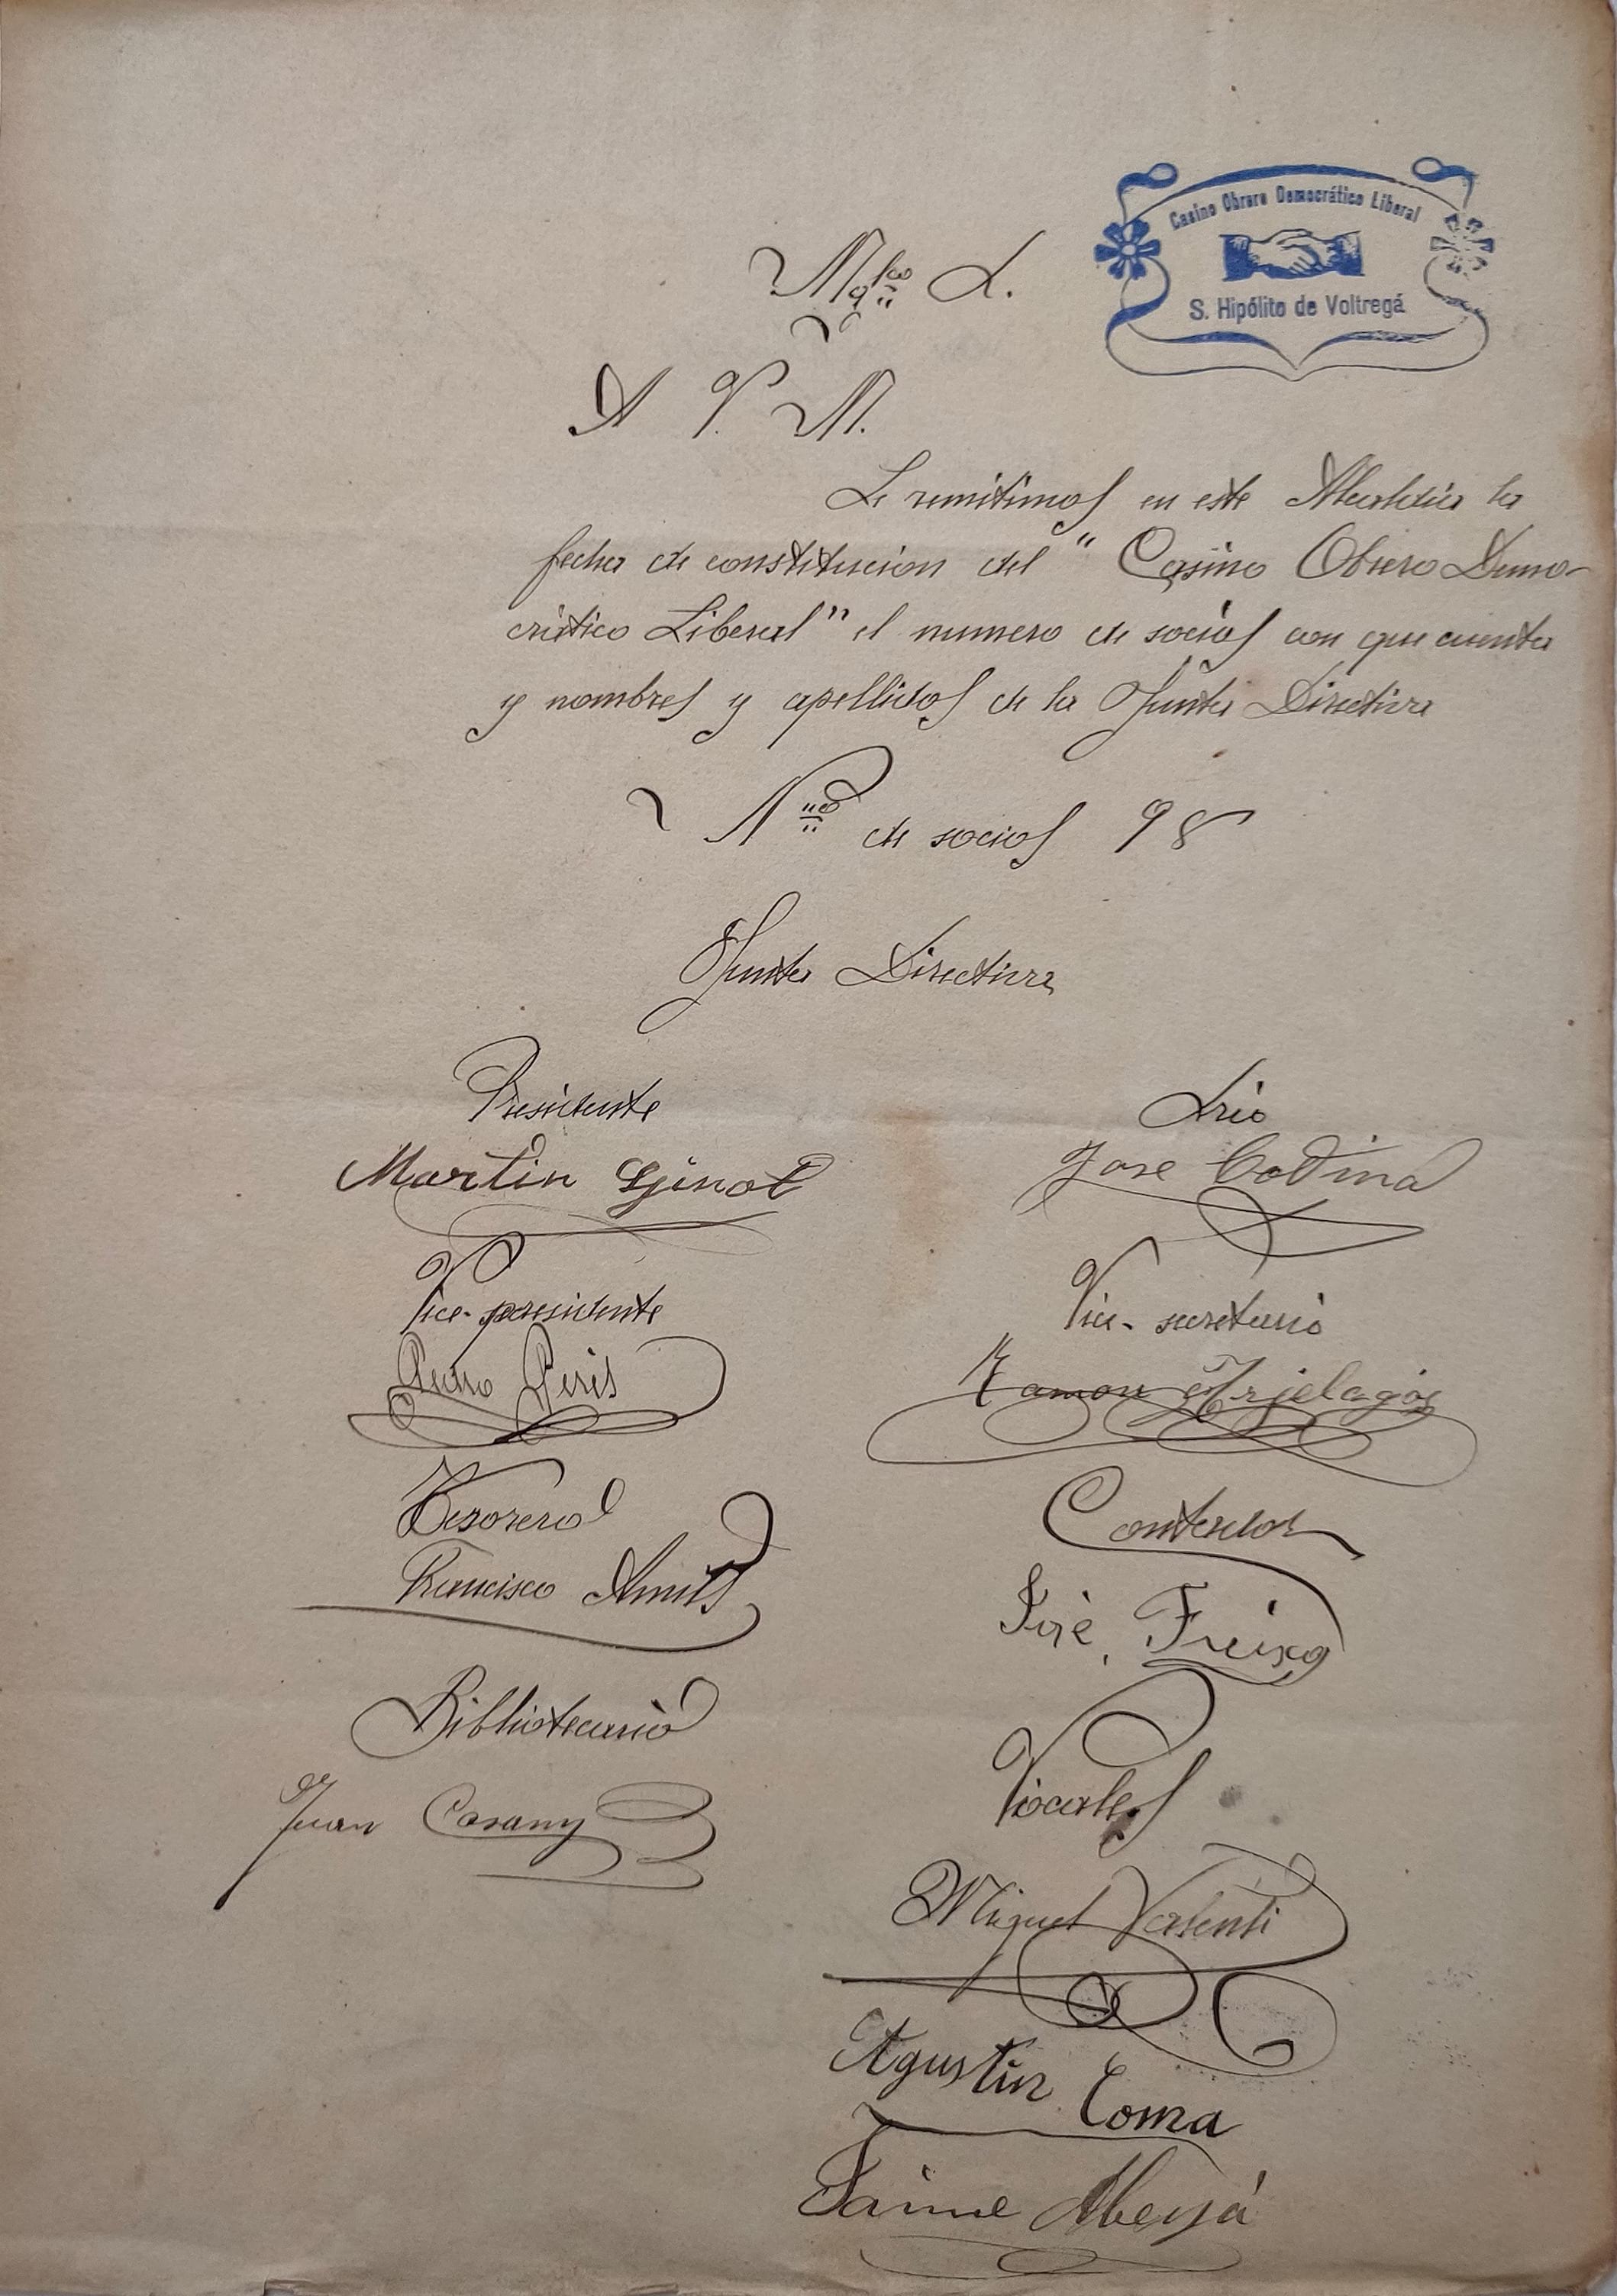 Casino Obrero Democrático Liberal
S. Hipólito de Voltregá
A V. M.
Le remitimos en este Alcaldia la
fecha de constitucion del " Casino Obrero Demo-
crático Liberal" el numero de socios con que cuenta
y nombres y apellidos de la Junta Directiva
de socios 98
Junta Directiva
Presidente
Martin
Vice-presidente
Pedro Peris
Tesorero
Francisco
Bibliotecario
Juan Casany
Srio
Jose Codina
Vice-secretario
Ramon
Contador
José Freixa
Vocales
Miguel Valenti
Agustin Coma
Jaime